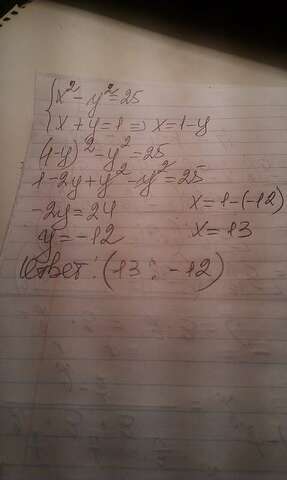 {x²-y²=25
{x+y=1 ⇒ x=1-y
(1-y)²-y²=25
1-2y+y²-y²=25
-2y=24
y=-12
x=1-(-12)
x=13
Ответ: (13; -12)